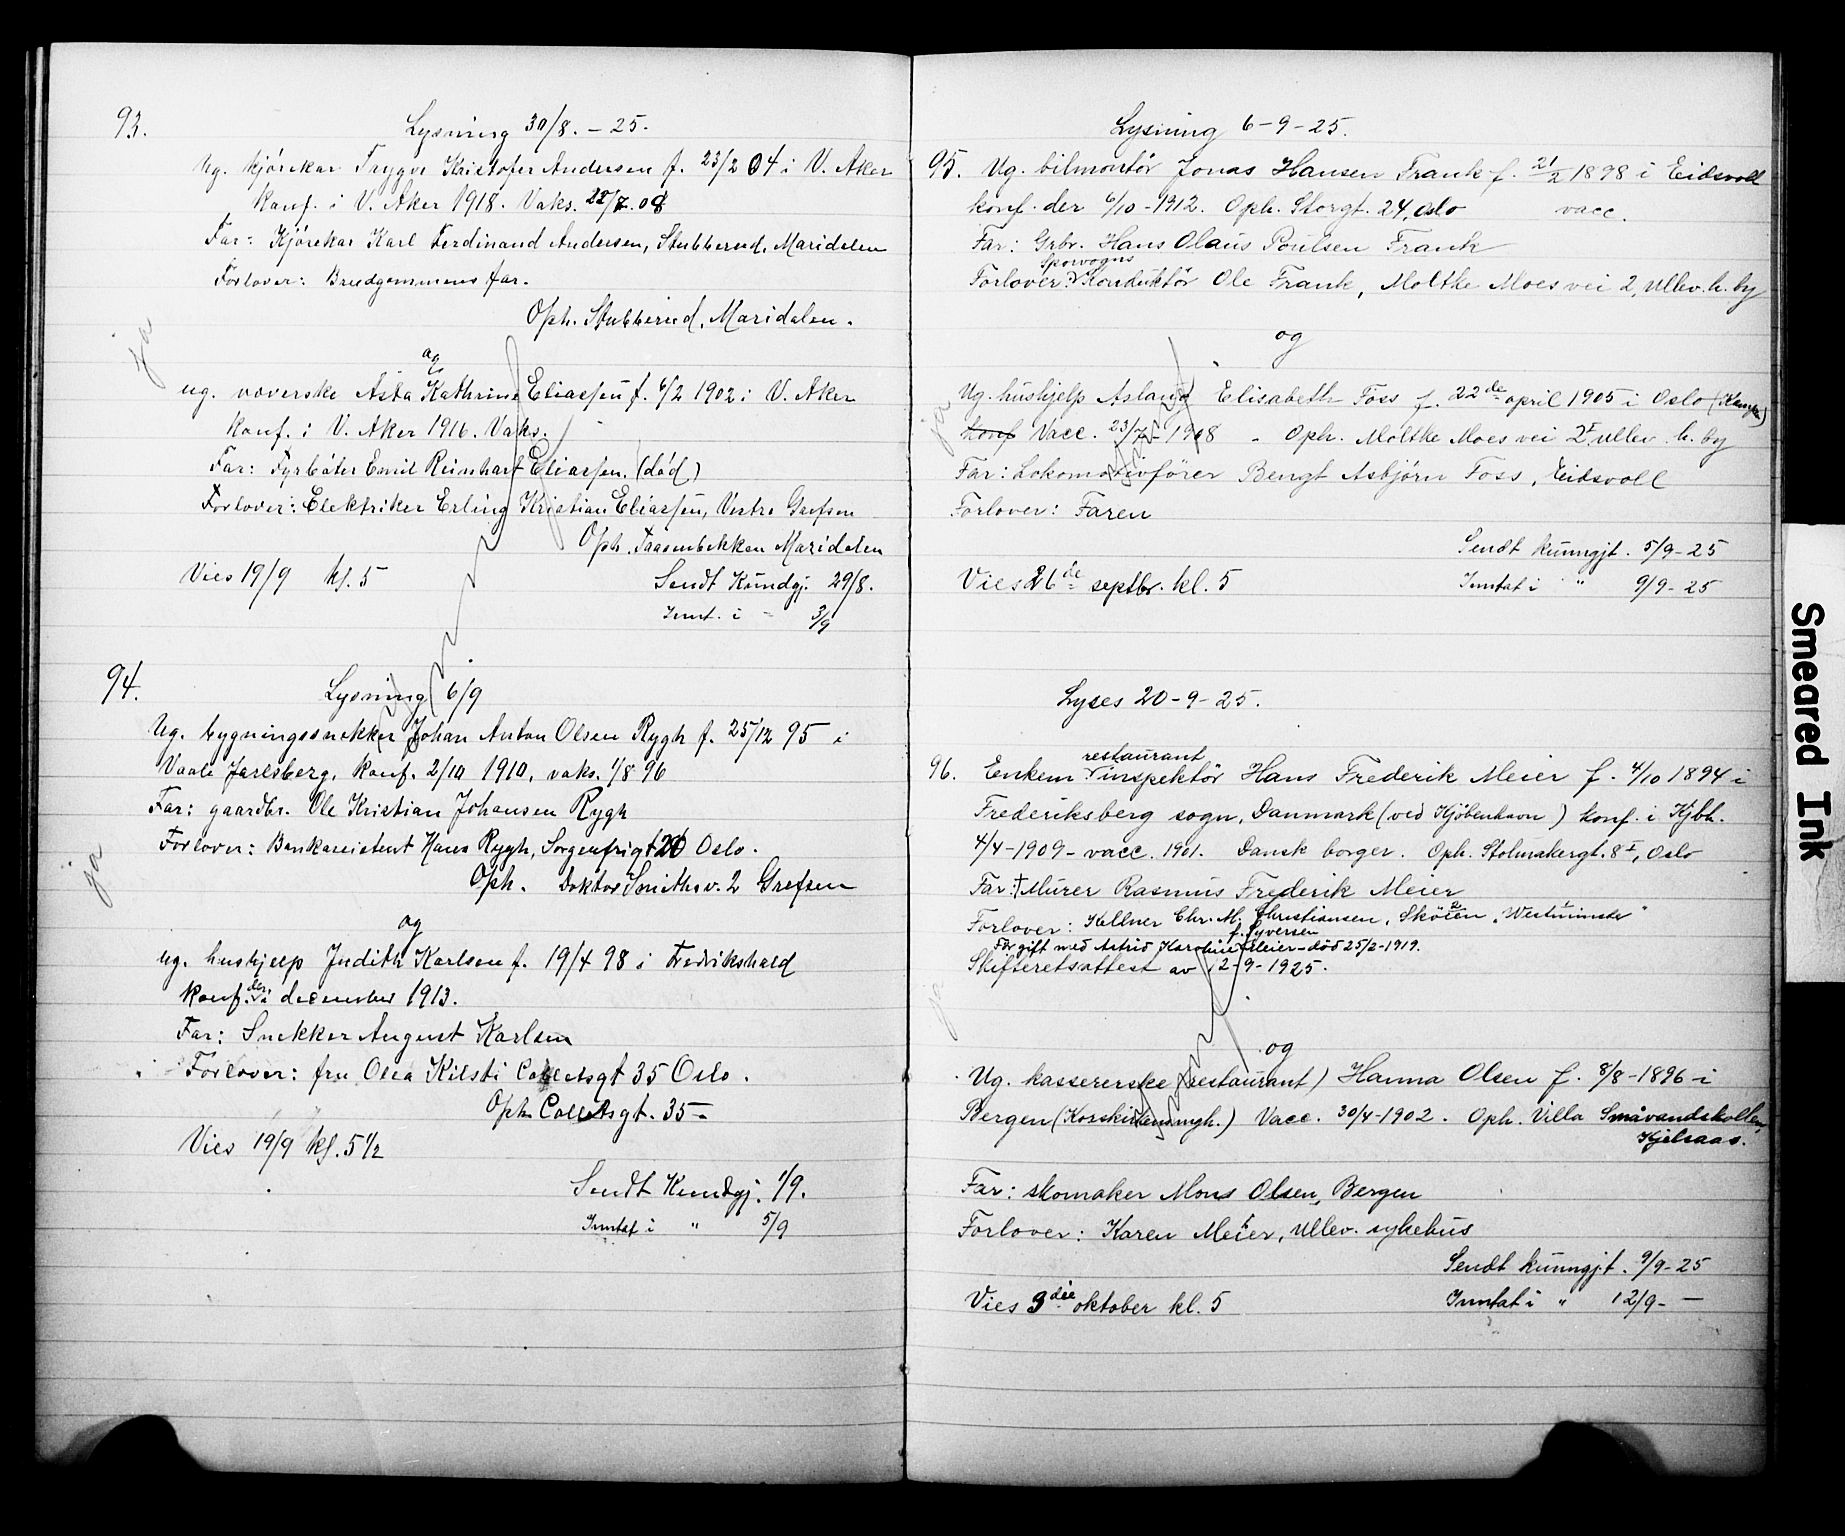 93.
Lysning 30/8. - 25.
Ug. kjörekar Trygve Kristofer Andersen f. 23/2 04 i V. Aker
konf. i V. Aker 1918. Vaks. 28/7. 08
Far: Kjörekar Karl Ferdinand Andersen, Stubberud, Maridalen
Forlover: Brudgommens far.
Oph. Stubberud, Maridalen.
ja
og
ug. væverske Asta Kathrine Eliassen f. 6/2 1902 i V. Aker
konf. i V. Aker 1916. Vaks.
Far: Fyrböter Emil Reinhart Eliassen. (död)
Forlover: Elektriker Erling Kristian Eliassen, Vestre Grefsen
Oph. Taasenbekken Maridalen
Vies 19/9 kl. 5
Sendt Kundgj. 29/8.
Innt. i " 3/9
94.
Lysning 6/9
Ug. bygningssnekker Johan Anton Olsen Rygh f. 25/12 95 i
Vaale Jarlsberg, konf. 2/10 1910, vaks. 1/8 96
Far: gaardbr. Ole Kristian Johansen Rygh
Forlover: Bankassistent Hans Rygh, Sorgenfrigt Oslo.
Oph. Doktor Smiths v. 2 Grefsen
ja
og
ug. hushjelp Judith Karlsen f. 19/4 98 i Fredrikshald
konf. der i december 1913.
Far: Snekker August Karlsen
Forlover: fru Olea Kilsti Collettsgt 35 Oslo.
Oph. Collettsgt. 35 -
Vies 19/9 kl. 5 1/2
Sendt Kundgj. 1/9.
Inntat i " 5/9
Lysning 6-9-25.
95. Ug. bilmontör Jonas Hansen Frank f. 21/2 1898 i Eidsvoll
konf. der 6/10-1912. Oph. Storgt. 24, Oslo vacc.
Far: Grbr. Hans Olaus Poulsen Frank
Forlover: Sporvogns Konduktör Ole Frank, Moltke Moes vei 2, Ullev. h. by
og
ja
Ug. hushjelp Aslaug Elisabeth Foss f. 22de april 1905 i Oslo (Kampen)
konf Vacc. 23/7-1908 - Oph. Moltke Moes vei 2 I Ullev. h. by
Far: Lokomotivförer Bengt Asbjörn Foss, Eidsvoll
Forlover: Faren
Sendt kunngjt. 5/9-25
Vies 26de septbr. kl. 5
Inntat i " 9/9-25
Lyses 20-9-25.
96. Enkem. restaurant inspektör Hans Frederik Meier f. 4/10 1894 i
Frederiksberg sogn, Danmark (ved Kjöbenhavn) konf. i Kjbh.
4/4-1909 - vacc. 1901. Dansk borger. Oph. Stolmakergt. 8 I, Oslo
Far: † Murer Rasmus Frederik Meier
Forlover: Kellner Chr. M. Christiansen, Sköien "Westminster"
För gift med Astrid Karoline Meier f. Syversen - död 25/2-1919.
Skifteretsattest av 12-9-1925.
ja
og
Ug. kassererske (restaurant) Hanna Olsen f. 8/8-1896 i
Bergen (Korskirkemngh.) Vacc. 30/4-1902. Oph. Villa Småvandskollen,
Kjelsaas.
Far: skomaker Mons Olsen, Bergen
Forlover: Karen Meier, Ullev. sykehus
Sendt kunngj.t. 9/9-25
Vies 3die oktober kl. 5
Inntat i " 12/9 - -
Smeared Ink